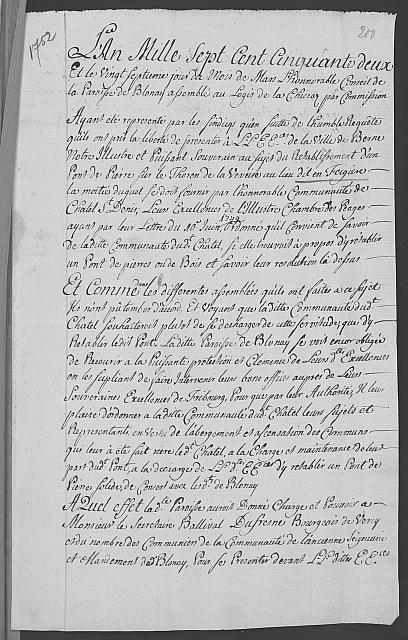 1752
200
L'An Mille Sept Cent Cinquante deux
Et le Vingt Septieme jour du Mois de Mars L'honnorable Conseil de
la Paroisse de Blonay assemblé au Logis de la Chiesaz, par Commission
Ayant ete represente par les sindiqs qu'en suitte de l'humble Requete
quils ont pris la liberte de presenter à LL.EE.ces de la Ville de Berne
Notre Illustre et Puissant Souverain au sujet du Retablissement d'un
Pont de Pierre sur le de la Veveise au lieu dit en Feigiere
la moitie duquel se doit fournir par l'honorable Communauté de
Chatel St Denis, Leurs Excellences de L'Illustre Chambre des Peages
ayant par leur Lettre du 10e Juin 1748 Ordonné quil Convient de Savoir
de laditte Communauté dud. Chatel, si elle trouvoit à propos d'y retablir
un Pont de pierres ou de Bois et savoir leur resolution la dessus
Et Comme dans les differentes assemblées quils ont faites à ce sujet
Ils n'ont pu tomber d'acord, Et voyant que laditte Communauté dud.
Chatel souhaiteroit plutot de se decharger de cette servitude, que d'y
Retablir ledit Pont, Laditte Paroisse de Blonay se voit encor obligée
de Recourir à la Puissante protection et Clemence de Leurs dtes Excellences
en les supliant de faire Intervenir leurs bons offices aupres de Leurs
Souveraines Excellences de Fribourg, Pour que par leur Authorité, Il leur
plaise d'ordonner à laditte Communauté dud. Chatel leurs sujets et
Represantants, en Vertu de l'abergement et ascensation des Communs
que leur à eté fait vere led. Chatel, à la Charge et maintenance de leur
part dud. Pont, à la decharge de LL.d. EE.ces d'y retablir un Pont de
Pierre solide, de Concert avec lesd. de Blonay
A Quel effet lad.te Paroisse auroit Donné Charge et Pouvoir à
Monsieur le Secretaire Ballival Dufresne Bourgeois de Vevey
et du nombre des Communiers de la Communauté de l'ancienne Seigneurie
et Mandement de Blonay, Pour se Presenter devant LL.dittes E.E.ces